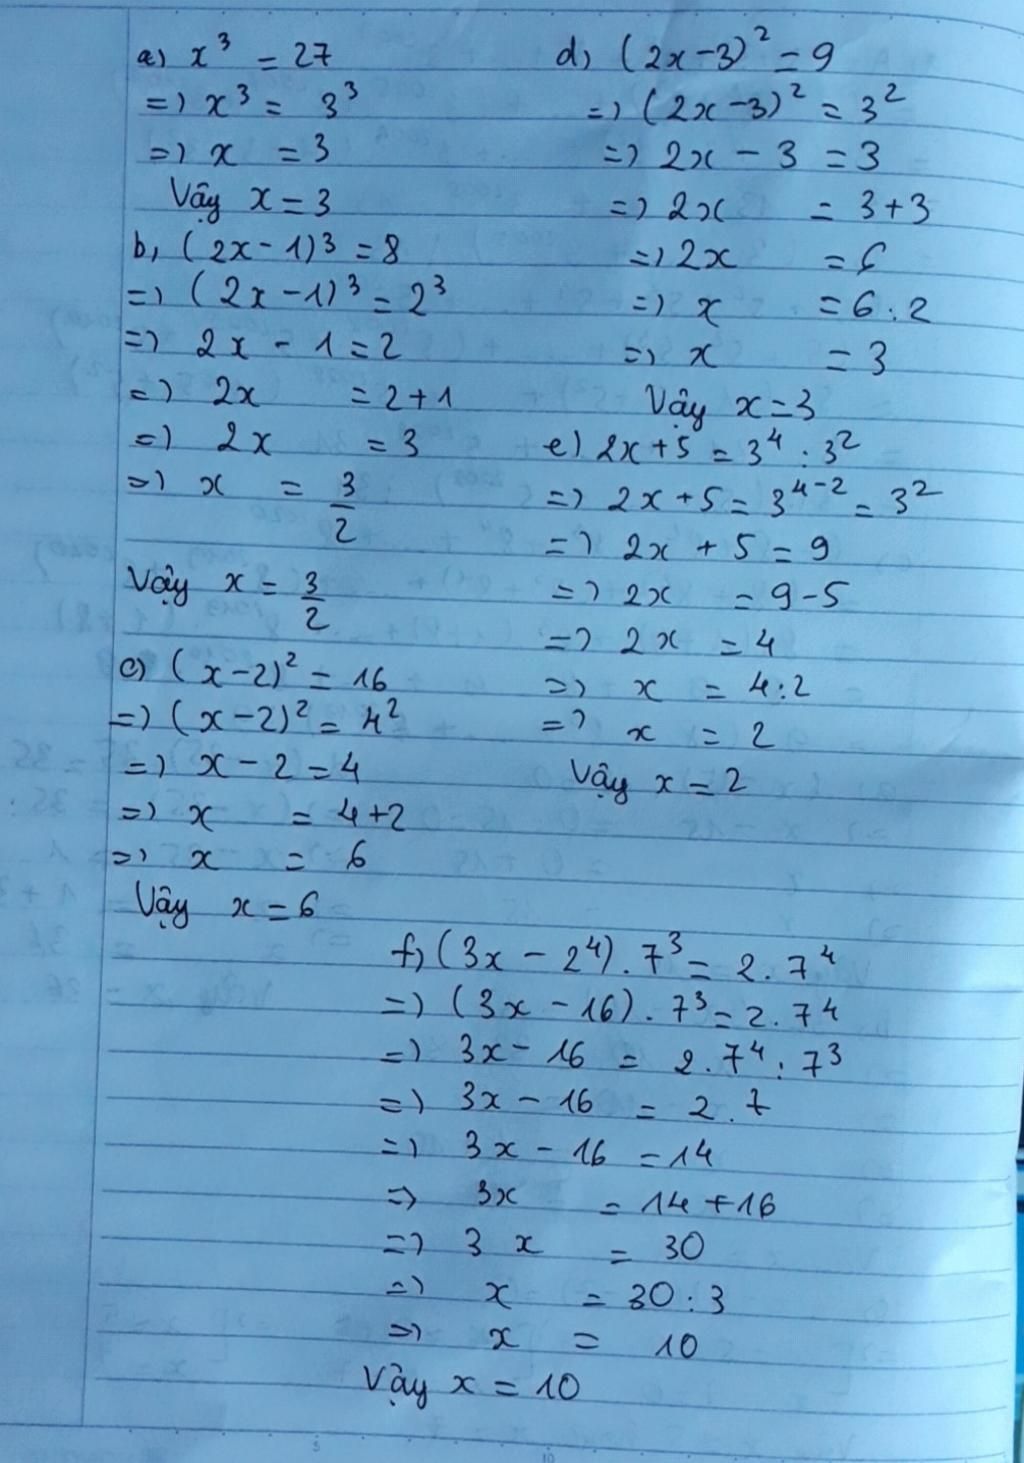 a) x³ = 27
=) x³ = 3³
=) x = 3
Vậy x = 3
b, (2x - 1)³ = 8
=) (2x - 1)³ = 2³
=) 2x - 1 = 2
=) 2x = 2 + 1
=) 2x = 3
=) x = 3/2
Vậy x = 3/2
c) (x - 2)² = 16
=) (x - 2)² = 4²
=) x - 2 = 4
=) x = 4 + 2
=) x = 6
Vậy x = 6
d, (2x - 3)² = 9
=) (2x - 3)² = 3²
=) 2x - 3 = 3
=) 2x = 3 + 3
=) 2x = 6
=) x = 6 : 2
=) x = 3
Vậy x = 3
e) 2x + 5 = 3⁴ : 3²
=) 2x + 5 = 3⁴⁻² = 3²
=) 2x + 5 = 9
=) 2x = 9 - 5
=) 2x = 4
=) x = 4 : 2
=) x = 2
Vậy x = 2
f, (3x - 2⁴) . 7³ = 2 . 7⁴
=) (3x - 16) . 7³ = 2 . 7⁴
=) 3x - 16 = 2 . 7⁴ : 7³
=) 3x - 16 = 2 . 7
=) 3x - 16 = 14
=) 3x = 14 + 16
=) 3x = 30
=) x = 30 : 3
=) x = 10
Vậy x = 10